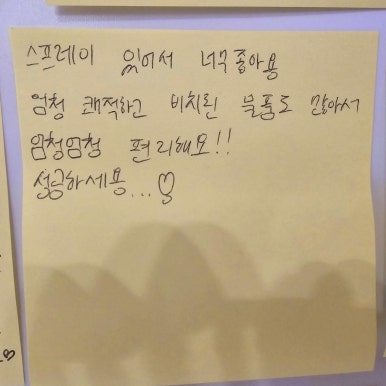 스프레이 있어서 너무좋아용
엄청 쾌적하고 비치된 물품도 많아서
엄청엄청 편리해요!!
성공하세용...♡
♡